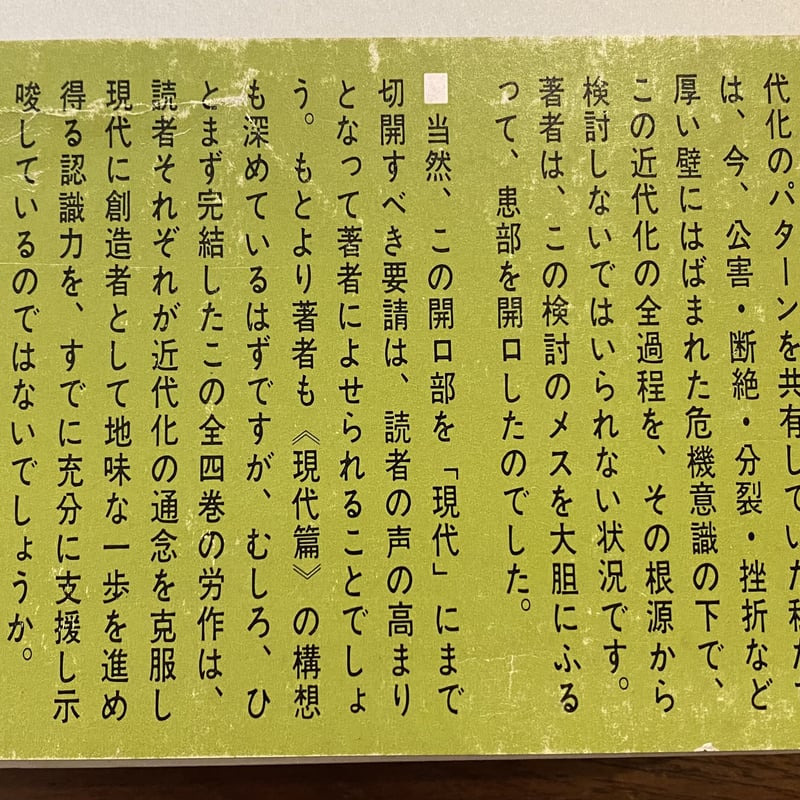 代化のパターンを共有していた私たち
は、今、公害・断絶・分裂・挫折など
厚い壁にはばまれた危機意識の下で、
この近代化の全過程を、その根源から
検討しないではいられない状況です。
著者は、この検討のメスを大胆にふる
って、患部を開口したのでした。
■当然、この開口部を「現代」にまで
切開すべき要請は、読者の声の高まり
となって著者によせられることでしょ
う。もとより著者も《現代篇》の構想
も深めているはずですが、むしろ、ひ
とまず完結したこの全四巻の労作は、
読者それぞれが近代化の通念を克服し
現代に創造者として地味な一歩を進め
得る認識力を、すでに充分に支援し示
唆しているのではないでしょうか。